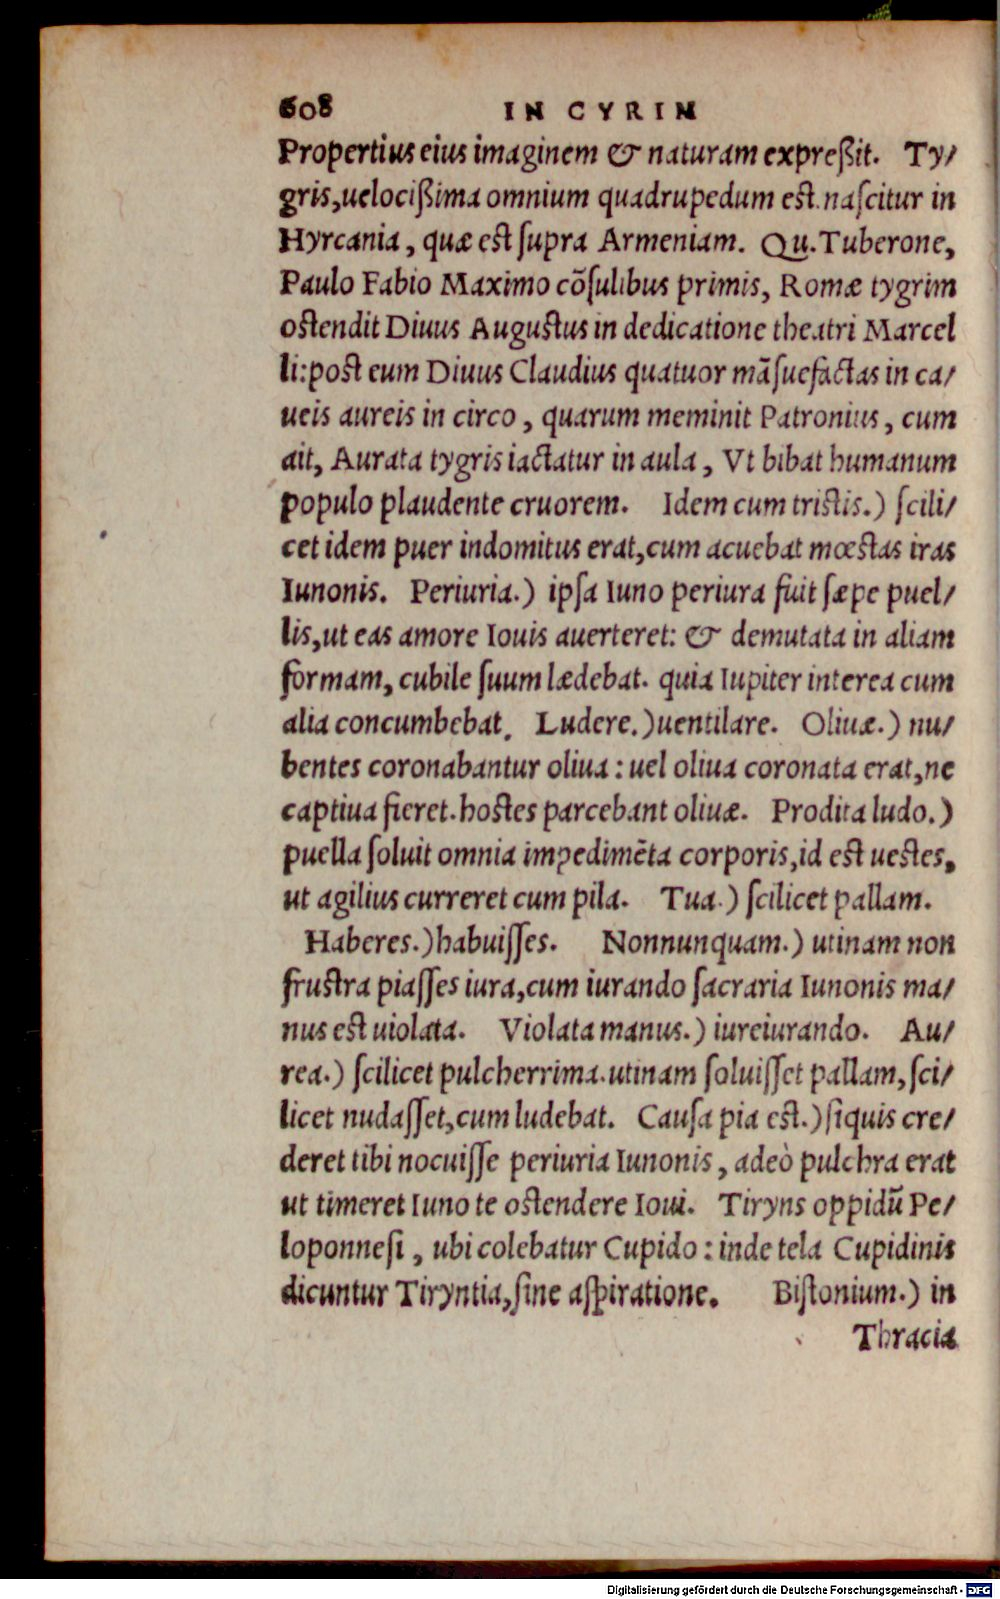 608 IN CYRIN
Propertius eius imaginem & naturam expreßit. Ty/
gris,uelocißima omnium quadrupedum est.nascitur in
Hyrcania, quæ est supra Armeniam. Qu.Tuberone,
Paulo Fabio Maximo cõsulibus primis, Romæ tygrim
ostendit Diuus Augustus in dedicatione theatri Marcel
li:post eum Diuus Claudius quatuor mãsuefactas in ca/
ueis aureis in circo, quarum meminit Patronius, cum
ait, Aurata tygris iactatur in aula, Vt bibat humanum
populo plaudente cruorem. Idem cum tristis.) scili/
cet idem puer indomitus erat,cum acuebat mœstas iras
Iunonis. Periuria.) ipsa Iuno periura fuit sæpe puel/
lis,ut eas amore Iouis auerteret: & demutata in aliam
formam, cubile suum lædebat. quia Iupiter interea cum
alia concumbebat. Ludere.)uentilare. Oliuæ.) nu/
bentes coronabantur oliua: uel oliua coronata erat,ne
captiua fieret.hostes parcebant oliuæ. Prodita ludo.)
puella soluit omnia impedimẽta corporis,id est uestes,
ut agilius curreret cum pila. Tua.) scilicet pallam.
Haberes.)habuisses. Nonnunquam.) utinam non
frustra piasses iura,cum iurando sacraria Iunonis ma/
nus est uiolata. Violata manus.) iureiurando. Au/
rea.) scilicet pulcherrima.utinam soluisset pallam,sci/
licet nudasset,cum ludebat. Causa pia est.)siquis cre/
deret tibi nocuisse periuria Iunonis, adeò pulchra erat
ut timeret Iuno te ostendere Ioui. Tiryns oppidũ Pe/
loponnesi, ubi colebatur Cupido: inde tela Cupidinis
dicuntur Tiryntia,sine aspiratione. Bistonium.) in
Thracia
Digitalisierung gefördert durch die Deutsche Forschungsgemeinschaft - DFG